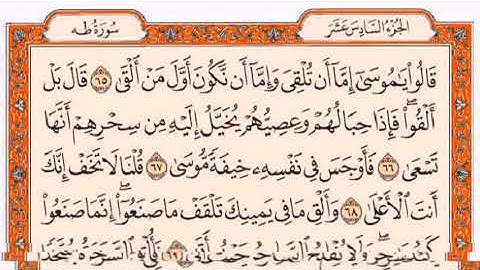 الجزء السادس عشر
سورة طه
قَالُوا۟ يَـٰمُوسَىٰٓ إِمَّآ أَن تُلْقِىَ وَإِمَّآ أَن نَّكُونَ أَوَّلَ مَنْ أَلْقَىٰ ٦٥ قَالَ بَلْ
أَلْقُوا۟ ۖ فَإِذَا حِبَالُهُمْ وَعِصِيُّهُمْ يُخَيَّلُ إِلَيْهِ مِن سِحْرِهِمْ أَنَّهَا
تَسْعَىٰ ٦٦ فَأَوْجَسَ فِى نَفْسِهِۦ خِيفَةً مُّوسَىٰ ٦٧ قُلْنَا لَا تَخَفْ إِنَّكَ
أَنتَ ٱلْأَعْلَىٰ ٦٨ وَأَلْقِ مَا فِى يَمِينِكَ تَلْقَفْ مَا صَنَعُوٓا۟ ۖ إِنَّمَا صَنَعُوا۟
كَيْدُ سَـٰحِرٍ ۖ وَلَا يُفْلِحُ ٱلسَّاحِرُ حَيْثُ أَتَىٰ ٦٩ فَأُلْقِىَ ٱلسَّحَرَةُ سُجَّدًا